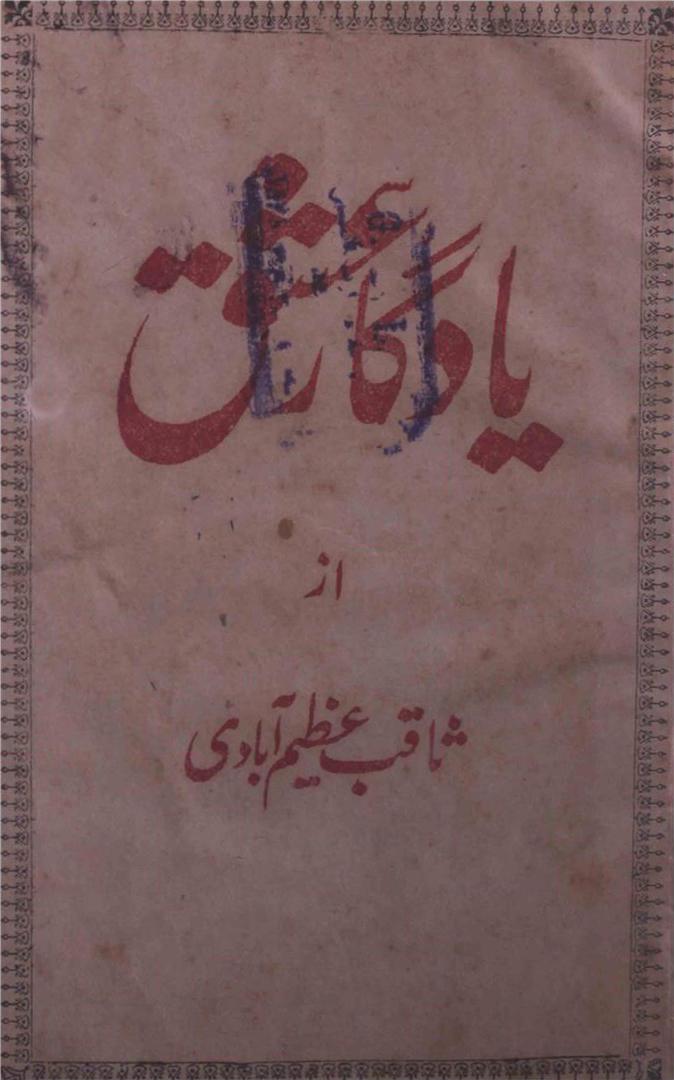 یادگار عشق
از
ثاقب عظیم آبادی